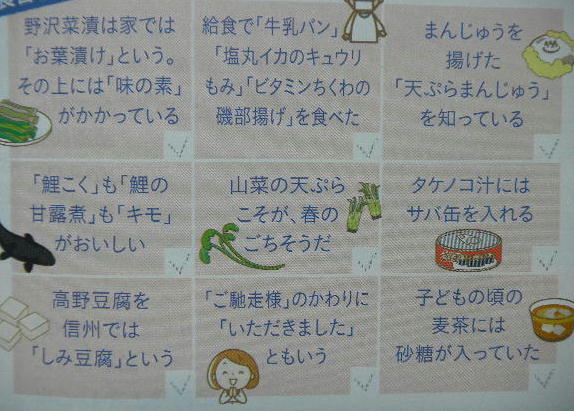 野沢菜漬は家では
「お葉漬け」という。
その上には「味の素」
がかかっている
給食で「牛乳パン」
「塩丸イカのキュウリ
もみ」「ビタミンちくわの
磯部揚げ」を食べた
まんじゅうを
揚げた
「天ぷらまんじゅう」
を知っている
「鯉こく」も「鯉の
甘露煮」も「キモ」
がおいしい
山菜の天ぷら
こそが、春の
ごちそうだ
タケノコ汁には
サバ缶を入れる
高野豆腐を
信州では
「しみ豆腐」という
「ご馳走様」のかわりに
「いただきました」
ともいう
子どもの頃の
麦茶には
砂糖が入っていた